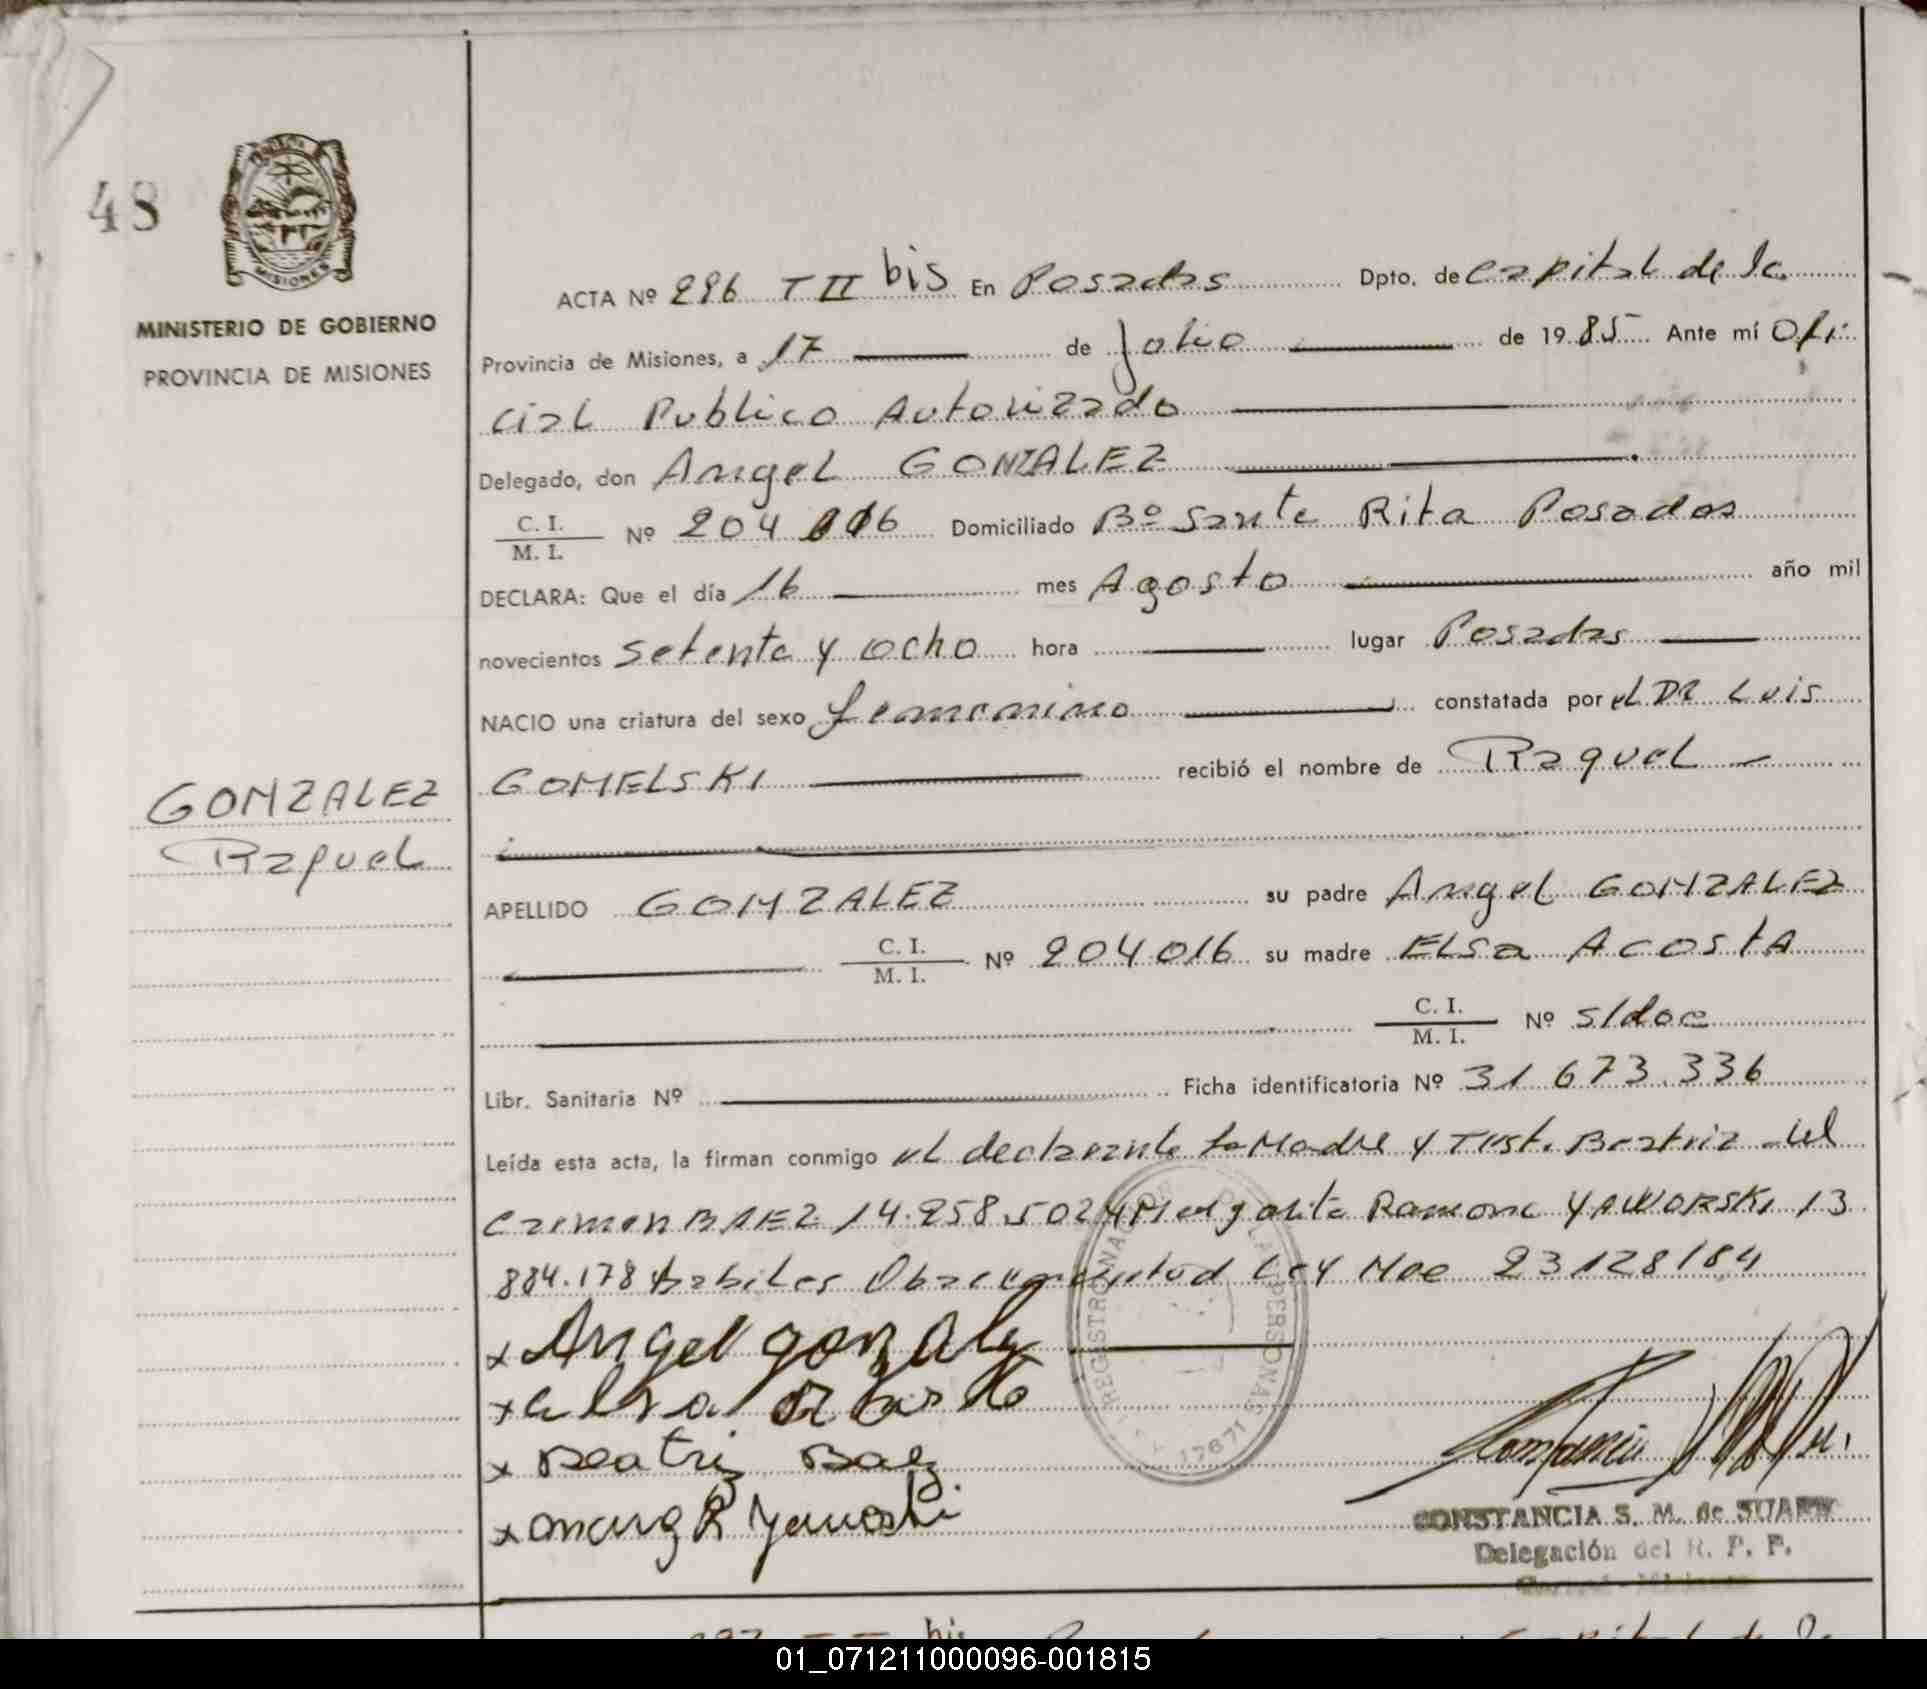 48
MISIONES
MINISTERIO DE GOBIERNO
PROVINCIA DE MISIONES
ACTA Nº 296 T II bis En Posadas Dpto. de Capital de la
Provincia de Misiones, a 17 de Julio de 1985 Ante mí Ofi
cial Publico Autorizado
Delegado, don Angel GONZALEZ
C. I. / M. I. Nº 204 016 Domiciliado Bº Santa Rita Posadas
DECLARA: Que el día 16 mes Agosto año mil
novecientos setenta y ocho hora lugar Posadas
NACIO una criatura del sexo femenino constatada por el DR Luis
GOMELSKI recibió el nombre de Raquel
GONZALEZ
Raquel
APELLIDO GONZALEZ su padre Angel GONZALEZ
C. I. / M. I. Nº 204016 su madre ELSA ACOSTA
C. I. / M. I. Nº s/doc
Libr. Sanitaria Nº Ficha identificatoria Nº 31 673.336
Leída esta acta, la firman conmigo el declarante la Madre y Test. Beatriz del
Carmen BAEZ 14.258.502 y Margarita Ramona YAWORSKI 13
884.178 habiles Ley 23128/84
x Angel gonzalez
x elsa
x Beatriz Baez
x marg R Yaworski
REGISTRO NACIONAL DE LAS PERSONAS
17671
CONSTANCIA S. M. de SUAREZ
Delegación del R. P. P.
297 T II bis
01_071211000096-001815